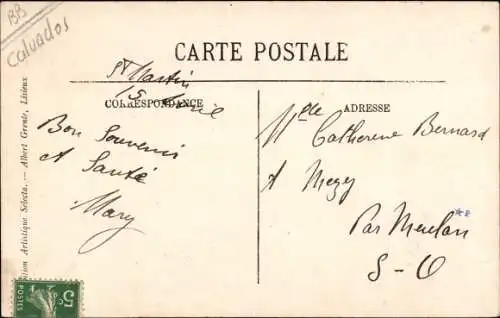 BB
Calvados
CARTE POSTALE
St Martin
15 Avril
CORRESPONDANCE
Bon Souvenir
et Santé
Mary
ADRESSE
Mlle
Catherene Bernard
A Mezy
Par Meulan
S-O
ition Artistique Selecta. — Albert Grente, Lisieux
5c
POSTES